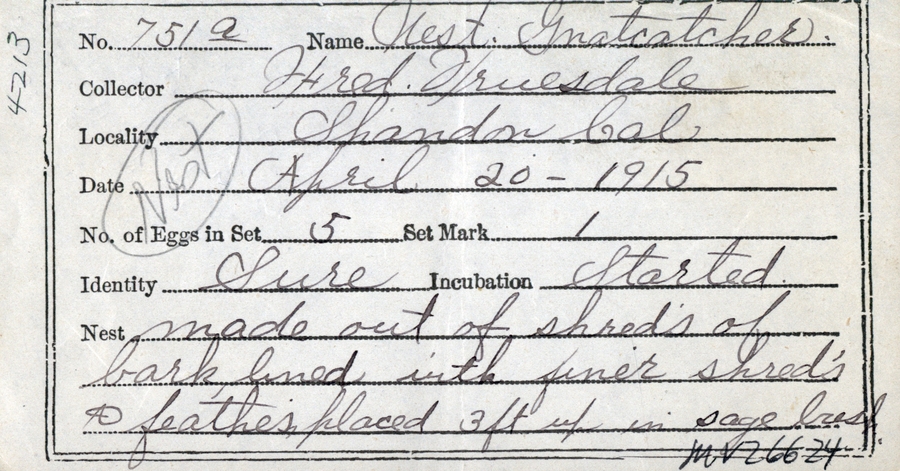 4-213
No. 751 a Name West. Gnatcatcher.
Collector Fred. Truesdale
Locality Shandon Cal
Date April 20 - 1915
Nest
No. of Eggs in Set 5 Set Mark 1
Identity Sure Incubation Started.
Nest made out of shred's of
bark lined with finer shred's
& feathes placed 3ft up in sage brush
MVZ 6624